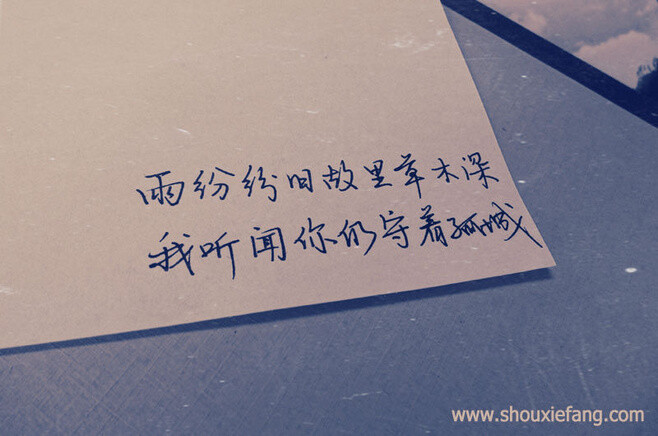 雨纷纷旧故里草木深
我听闻你仍守着孤城
www.shouxiefang.com